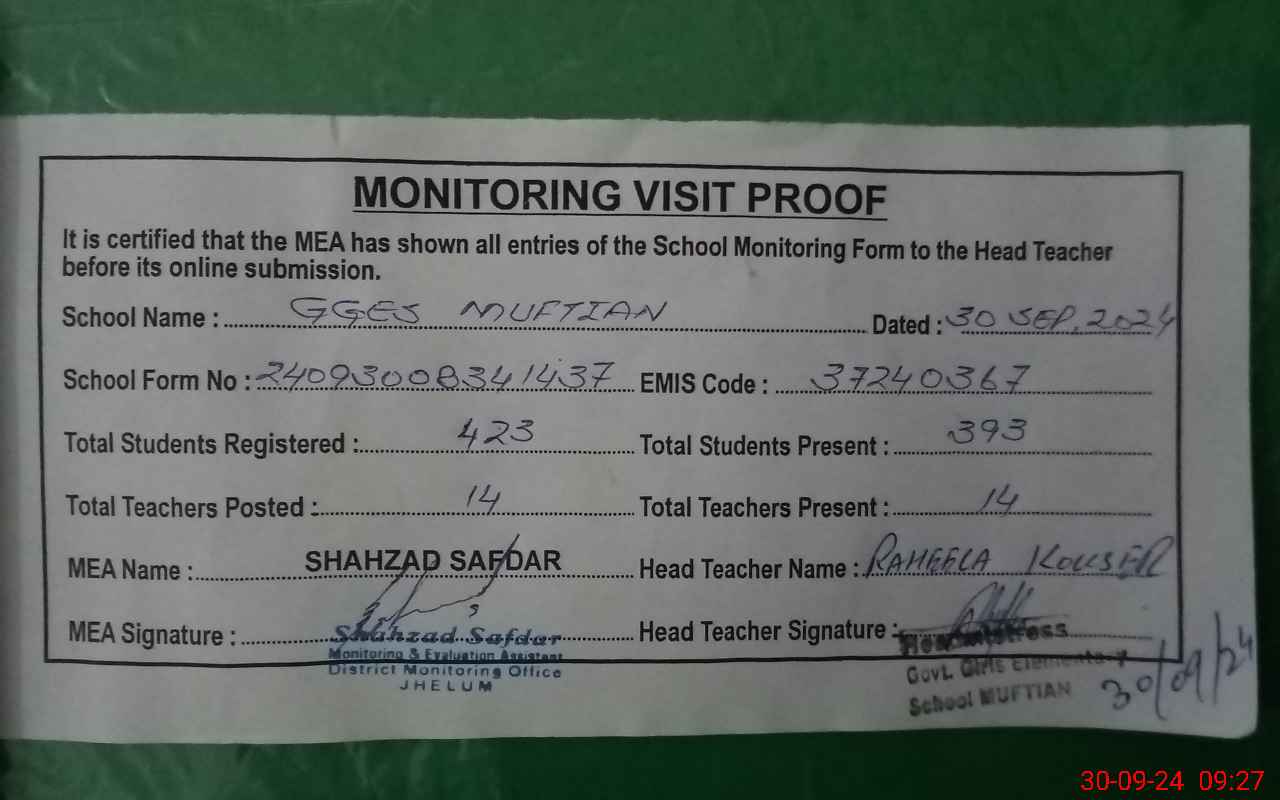 MONITORING VISIT PROOF
It is certified that the MEA has shown all entries of the School Monitoring Form to the Head Teacher
before its online submission.
School Name : GGES MUFTIAN Dated : 30 SEP, 2024
School Form No : 24093008341437 EMIS Code : 37240367
Total Students Registered : 423 Total Students Present : 393
Total Teachers Posted : 14 Total Teachers Present : 14
MEA Name : SHAHZAD SAFDAR Head Teacher Name : RAHEELA KOUSER
MEA Signature : Head Teacher Signature :
Shahzad Safdar
Monitoring & Evaluation Assistant
District Monitoring Office
JHELUM
Headmistress
Govt. Girls Elementary
School MUFTIAN
30/09/24
30-09-24 09:27